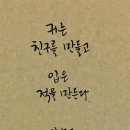 귀는
친구를 만들고
입은
적을 만든다